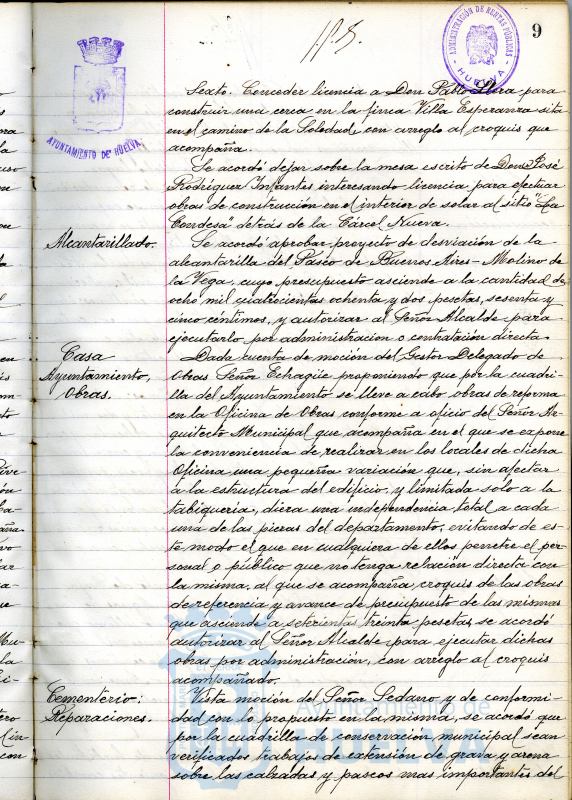 9
ADMINISTRACIÓN DE RENTAS PÚBLICAS
HUELVA
AYUNTAMIENTO DE HUELVA
Sexto. Conceder licencia a Don Pablo para
construir una cerca en la finca Villa Esperanza sita
en el camino de la Soledad, con arreglo al croquis que
acompaña.
Se acordó dejar sobre la mesa escrito de Don José
Rodriguez Infantes interesando licencia para efectuar
obras de construcción en el interior de solar al sitio "La
Condesa" detrás de la Cárcel Nueva.
Alcantarillado.
Se acordó aprobar proyecto de desviación de la
alcantarilla del Paseo de Buenos Aires-Molino de
la Vega, cuyo presupuesto asciende a la cantidad de
ocho mil cuatrocientas ochenta y dos pesetas, sesenta y
cinco céntimos, y autorizar al Señor Alcalde para
ejecutarlo por administracion o contratación directa.
Casa
Ayuntamiento,
Obras.
Dada cuenta de moción del Gestor Delegado de
Obras Señor Echagüe proponiendo que por la cuadri-
lla del Ayuntamiento se lleve a cabo obras de reforma
en la Oficina de Obras conforme a oficio del Señor Ar-
quitecto Municipal que acompaña en el que se expone
la conveniencia de realizar en los locales de dicha
Oficina una pequeña variación que, sin afectar
a la estructura del edificio, y limitada solo a la
tabiqueria, diera una independencia total a cada
una de las piezas del departamento, evitando de es-
te modo el que en cualquiera de ellos penetre el per-
sonal o público que no tenga relación directa con
la misma, al que se acompaña, croquis de las obras
de referencia y avance de presupuesto de las mismas
que asciende a setecientas treinta pesetas, se acordó
autorizar al Señor Alcalde para ejecutar dichas
obras por administración, con arreglo al croquis
acompañado.
Cementerio:
Reparaciones.
Vista moción del Señor Sedano y de conformi-
dad con lo propuesto en la misma, se acordó que
por la cuadrilla de conservación municipal sean
verificados trabajos de extensión de grava y arena
sobre las calzadas y paseos mas importantes del
Ayuntamiento de
HUELVA